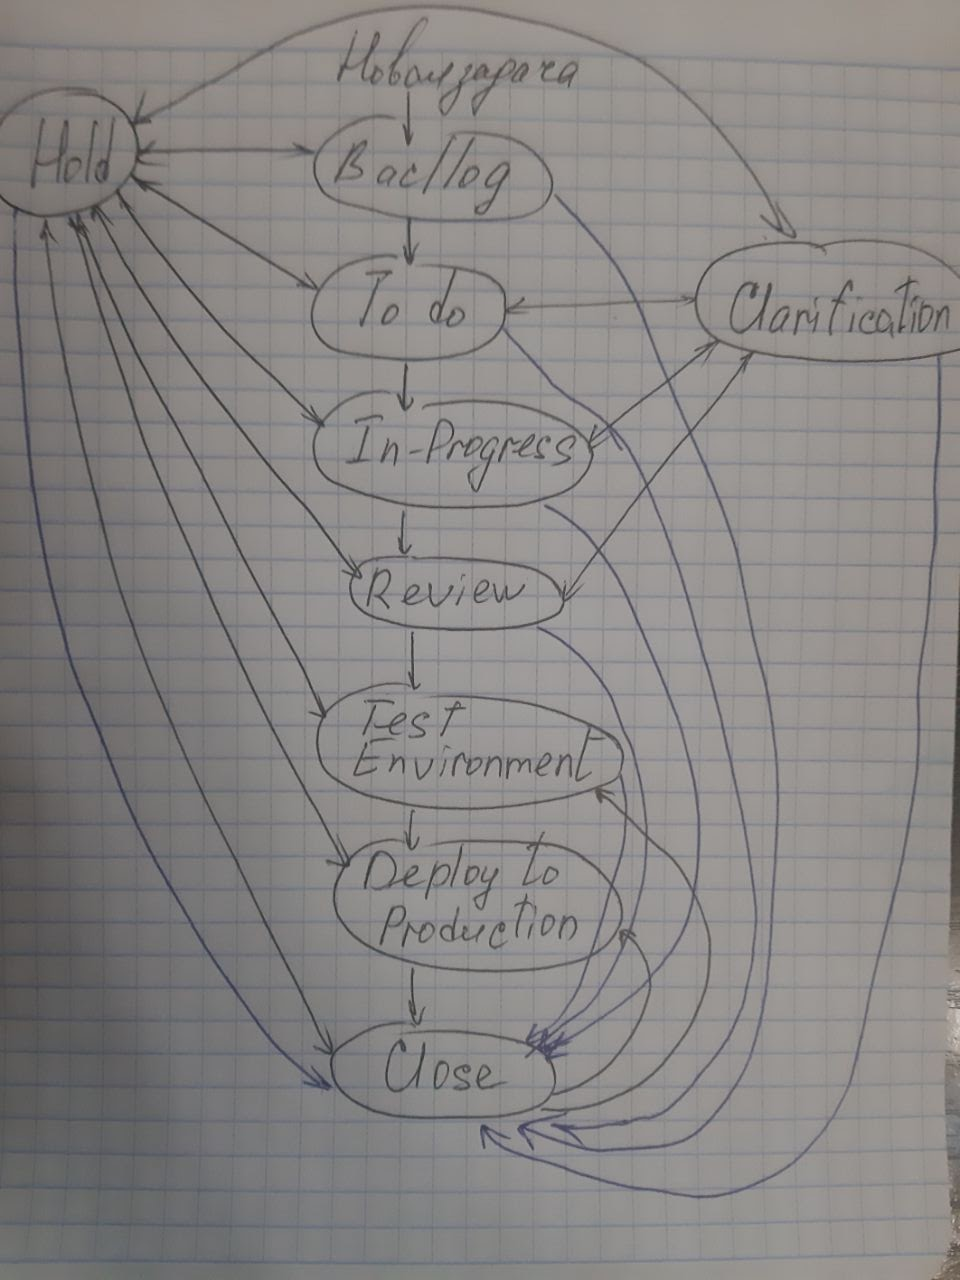 Новая задача
Hold
Backlog
To do
Clarification
In-Progress
Review
Test
Environment
Deploy to
Production
Close